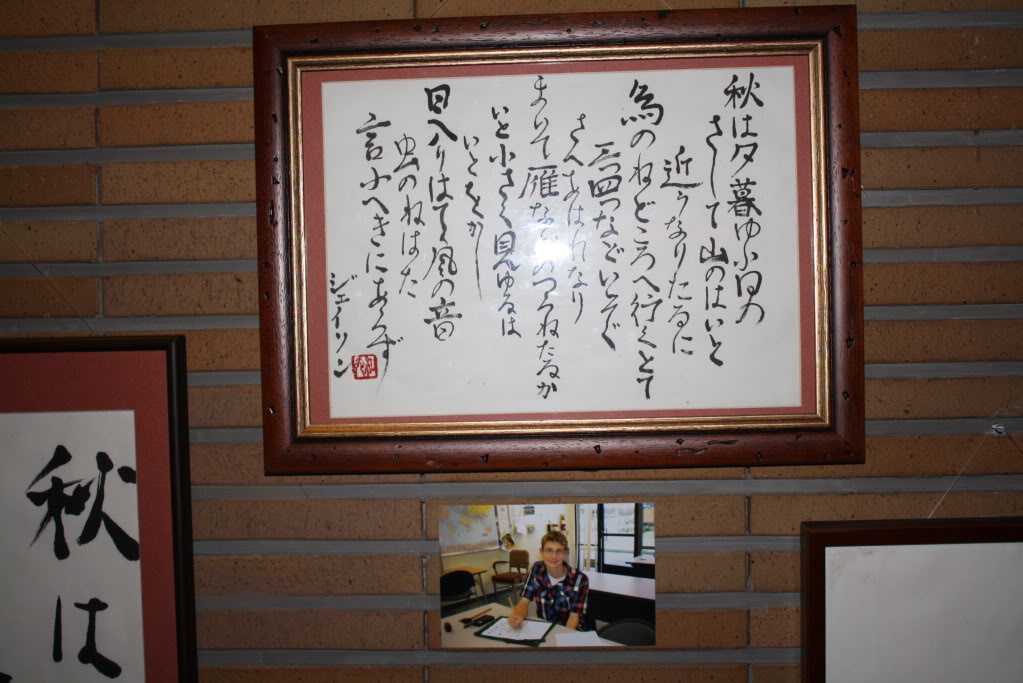 秋は夕暮ゆふ日の
さして山のはいと
近うなりたるに
烏のねどころへ行くとて
三四つなどいそぐ
さへあはれなり
まいて雁などのつらねたるか
いと小さく見ゆるは
いとをかし
日入りはてゝ風の音
虫のねはた
言ふへきにあらず
ジェイソン
秋は